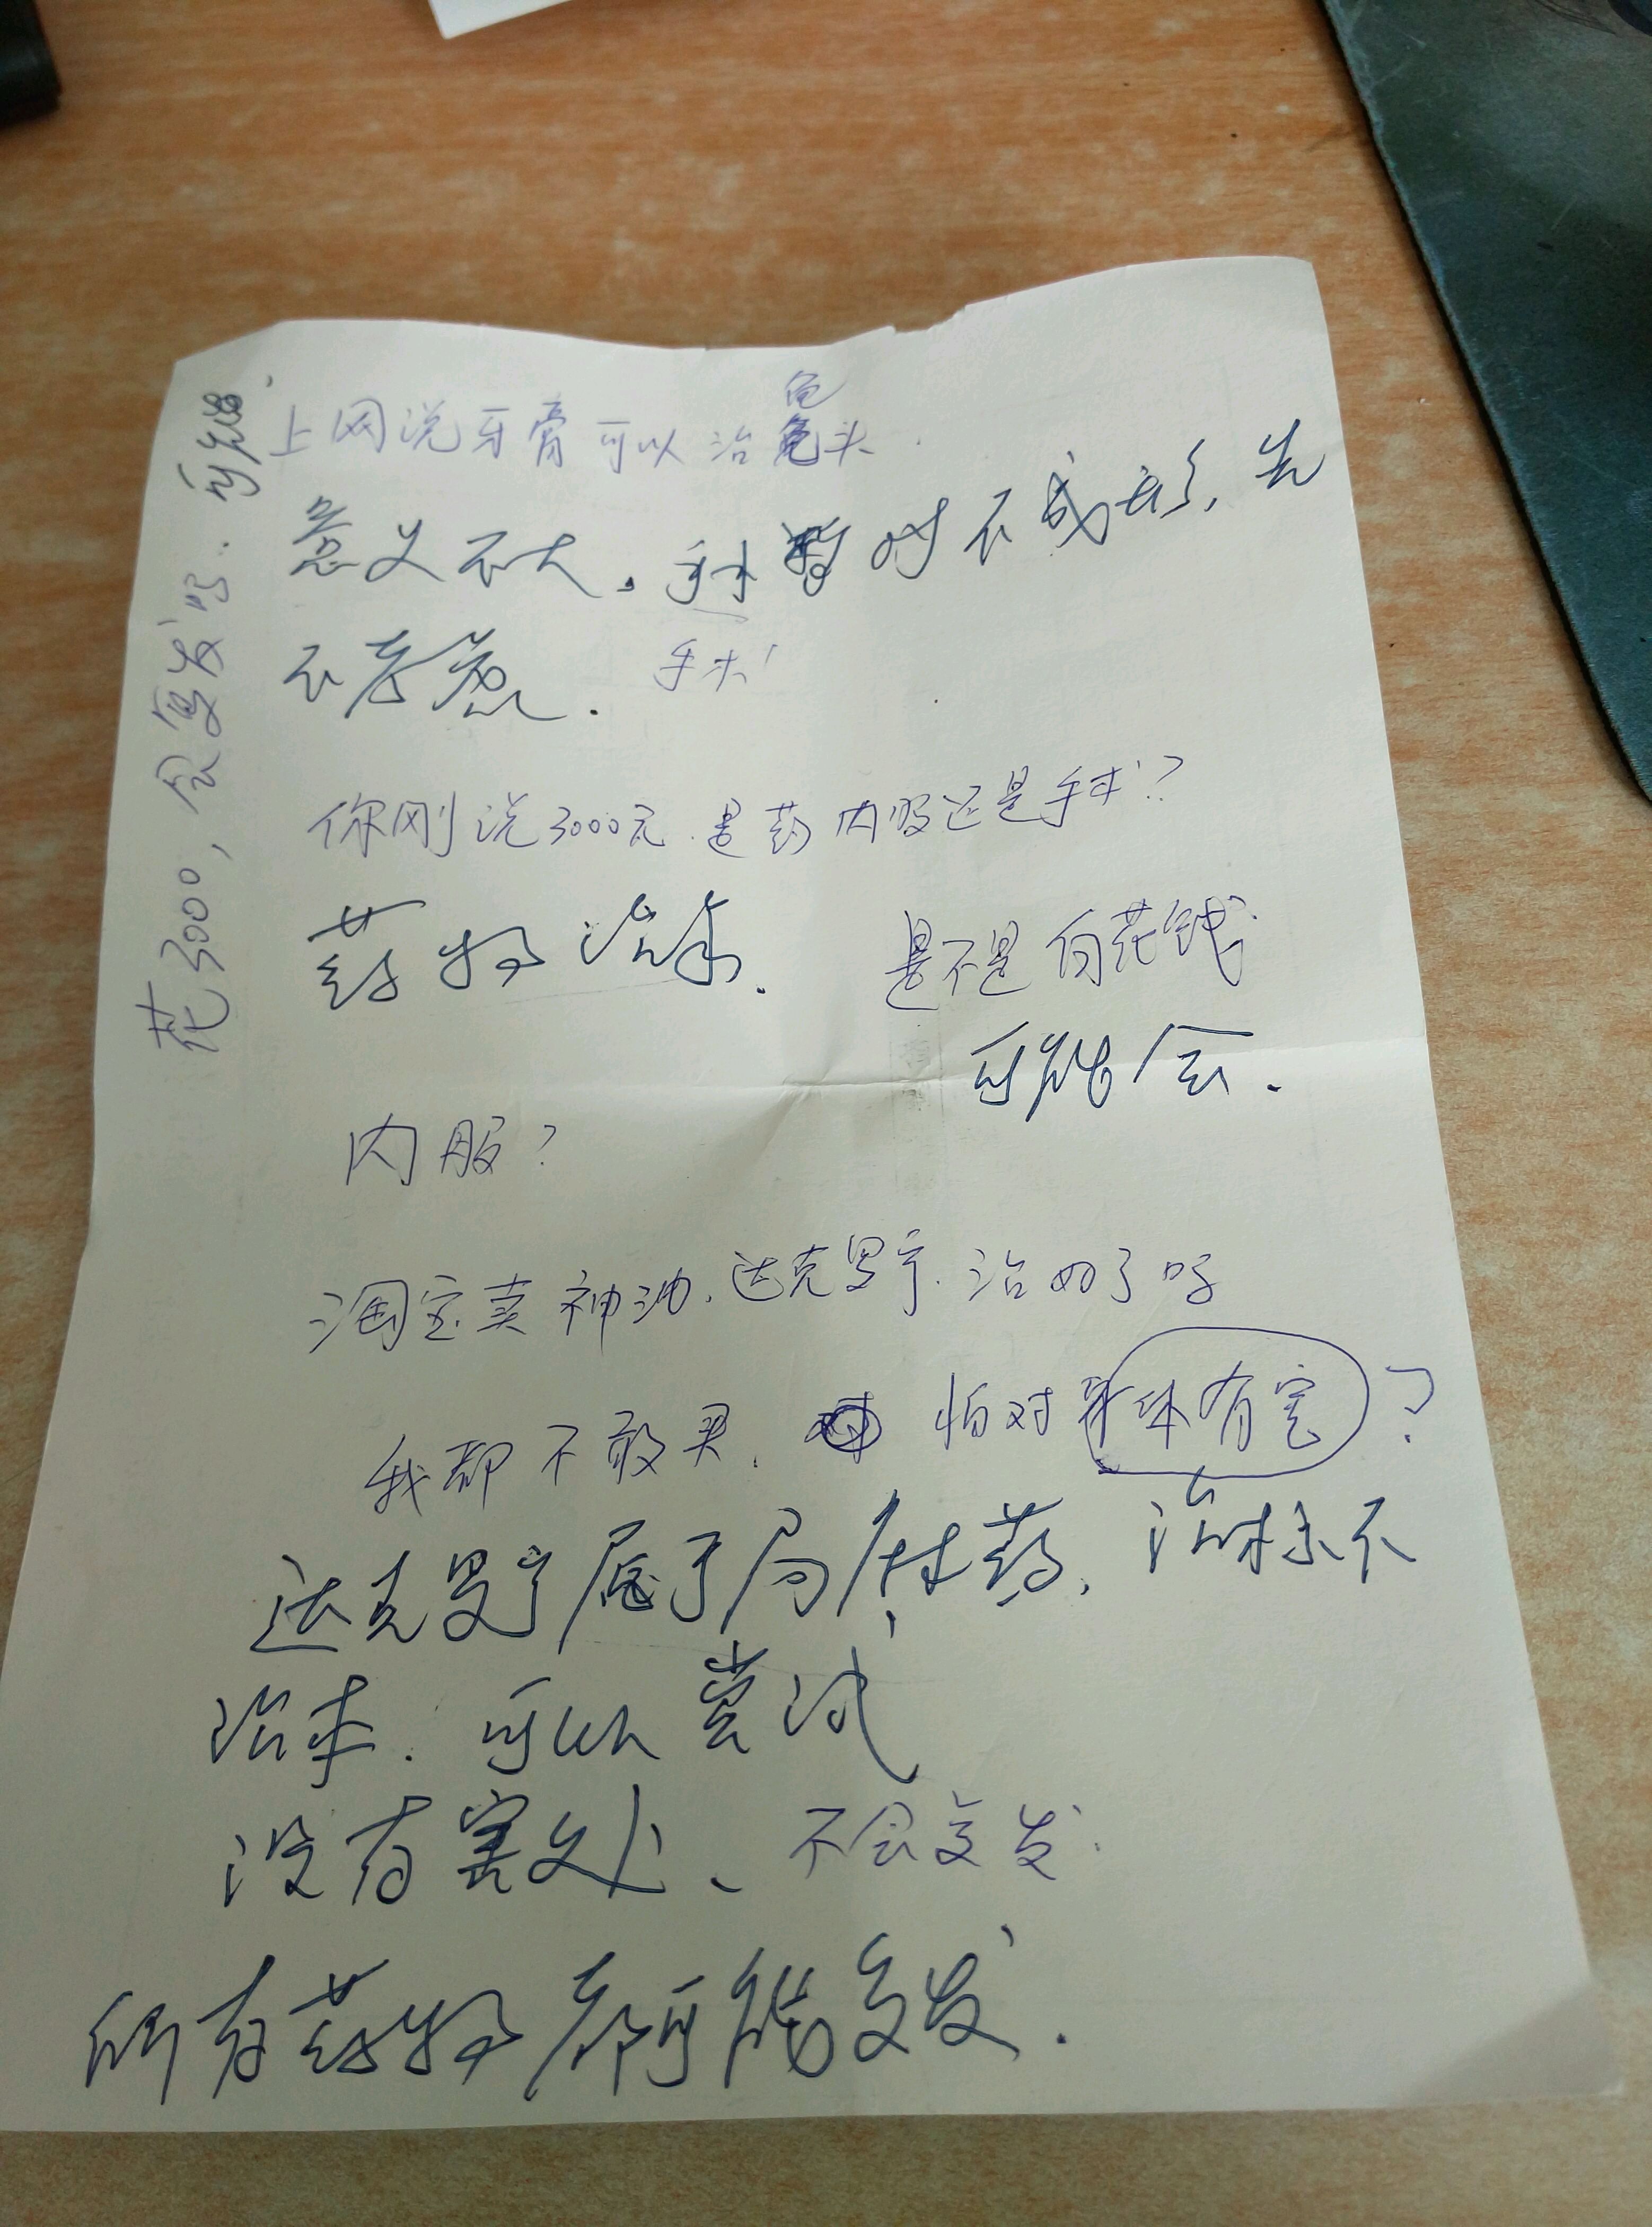 上网说牙膏可以治龟头.
龟
意义不大。手术暂时不成形,先
不考虑.
手术
你刚说3000元.是药内服还是手术?
药物治疗.
是不是白花钱
可能会.
内服?
淘宝卖神油.达克罗宁.治的了吗
我都不敢买.怕对身体有害?
达克罗宁属于局麻药,治标不
治本.可以尝试
没有害处、不会复发.
所有药物都可能复发.
花3000,会复发吗.可能.